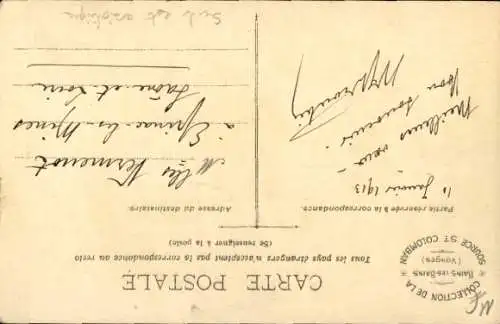 CARTE POSTALE
Tous les pays étrangers n'acceptent pas la correspondance au recto
(Se renseigner à la poste)
Partie réservée à la correspondance.
Adresse du destinataire.
COLLECTION DE LA
SOURCE ST COLOMBAN
BAINS-LES-BAINS
(Vosges)
1er Janvier 1913
Meilleurs vœux -
bon souvenir
Mlles Vermenot
à Epinac-les-Mines
Saône-et-Loire